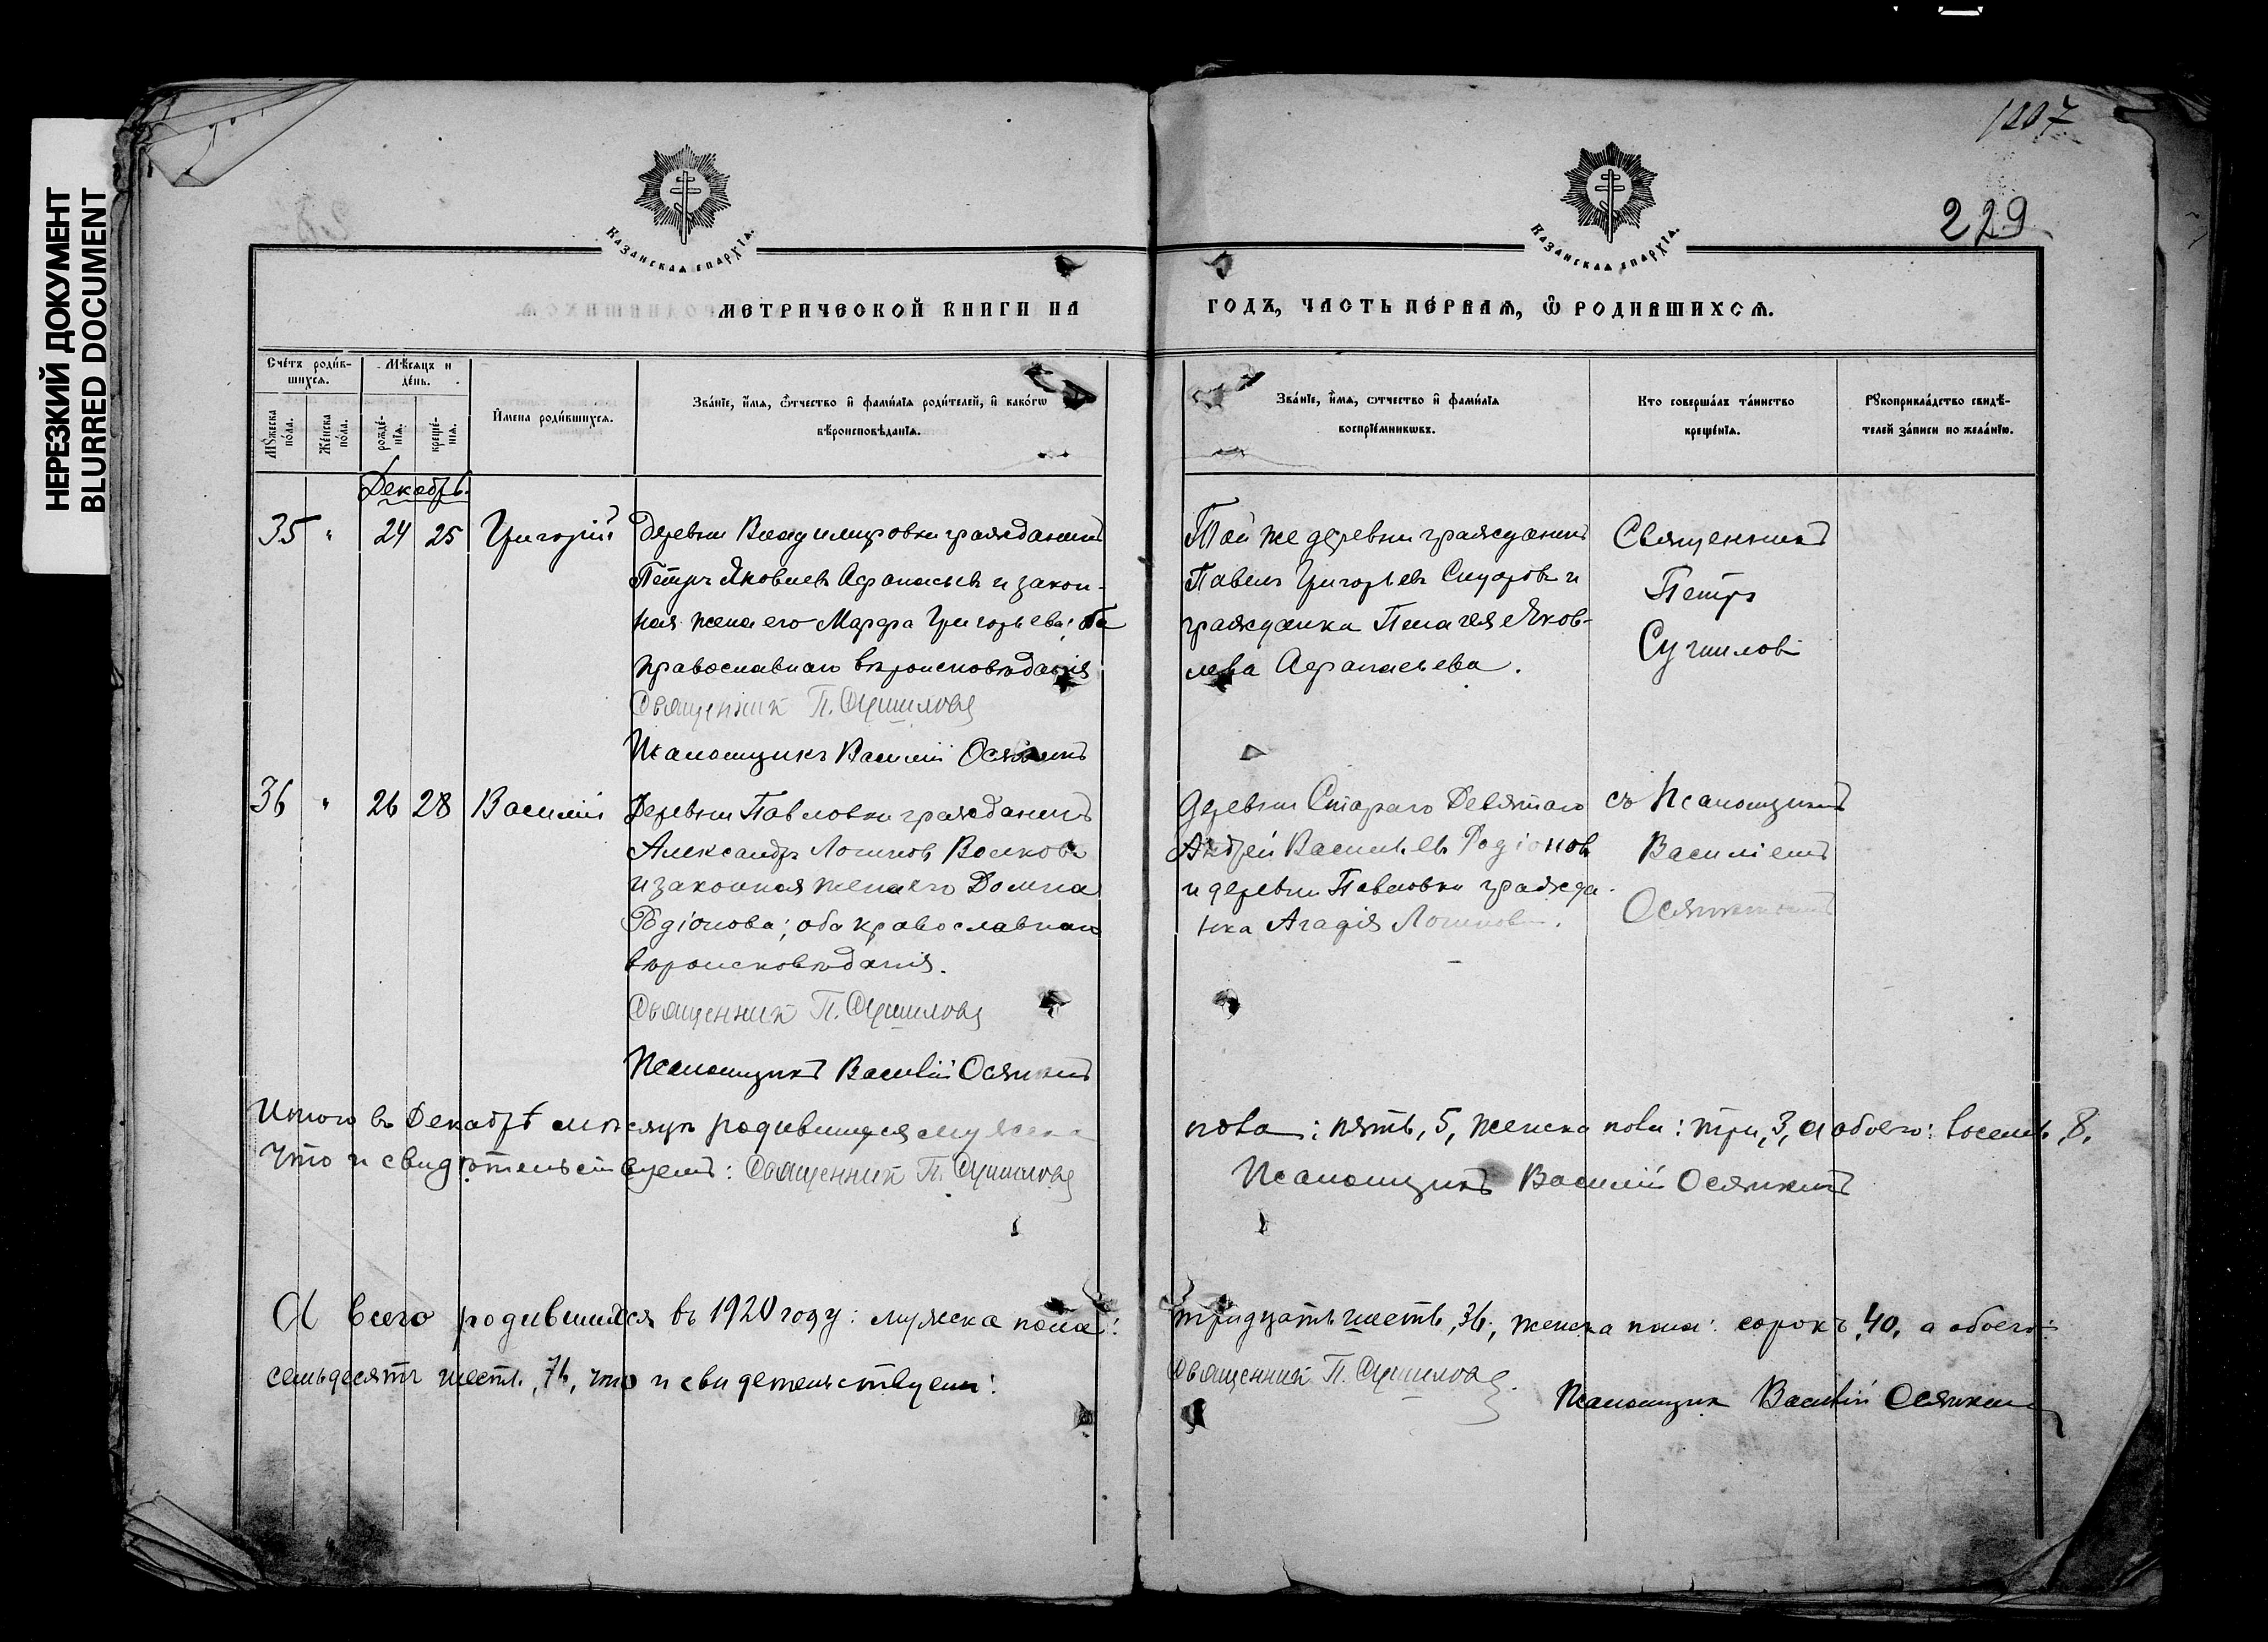 НЕРЕЗКИЙ ДОКУМЕНТ
BLURRED DOCUMENT
1207
229
КАЗАНСКАЯ ЕПАРХІЯ.
КАЗАНСКАЯ ЕПАРХІЯ.
МЕТРИЧЕСКОЙ КНИГИ НА
ГОДЪ, ЧАСТЬ ПЕ́РВАЯ, Ѿ РОДИВШИХСЯ.
Сче́тъ роди́в-
шихся.
Мѣсяцъ и
де́нь.
Мꙋ́жеска
по́ла.
Же́нска
по́ла.
рожде́-
нїя.
креще́-
нїя.
И҆мена роди́вшихся.
Зва́нїе, и҆́мя, ѻ҆́тчество и҆ фами́лїя роди́телей, и҆ како́гѡ
вѣроисповѣ́данїя.
Зва́нїе, и҆́мя, ѻ҆́тчество и҆ фами́лїя
воспрїе́мниковъ.
Кто соверша́лъ та́инство
креще́нїя.
Рꙋкоприкла́дство свидѣ́-
телей за́писи по жела́нїю.
Декабрь.
35 " 24 25 Григорій
Деревни Владимировки гражданинъ
Петръ Яковлевъ Афанасьевъ и закон-
ная жена его Марфа Григорьева; оба
православнаго вѣроисповѣданія
Священникъ П. Сушиловъ
Псаломщикъ Василій Осянинъ
Той же деревни гражданинъ
Павелъ Григорьевъ Сидоровъ и
гражданка Пелагея Яков-
лева Афанасьева.
Священникъ
Петръ
Сушиловъ
36 " 26 28 Василій
Деревни Павловки гражданинъ
Александръ Логиновъ Волковъ
и законная жена его Домна
Родіонова; оба православнаго
вѣроисповѣданія.
Священникъ П. Сушиловъ
Псаломщикъ Василій
Деревни Стараго Девятаго
Андрей Васильевъ Родіоновъ
и деревни Павловки гражда-
нка Агафія Логинова.
съ Псаломщикомъ
Василіемъ
Итого въ Декабрѣ мѣсяцѣ родившихся мужска
пола: пять, 5, женска пола: три, 3, а обоего: восемь, 8.
Что и свидѣтельствуемъ: Священникъ П. Сушиловъ
Псаломщикъ Василій
А всего родившихся въ 1920 году: мужска пола:
тридцать шесть, 36, женска пола: сорокъ, 40, а обоего:
семьдесятъ шесть, 76, что и свидетельствуемъ:
Священникъ П. Сушиловъ
Псаломщикъ Василій